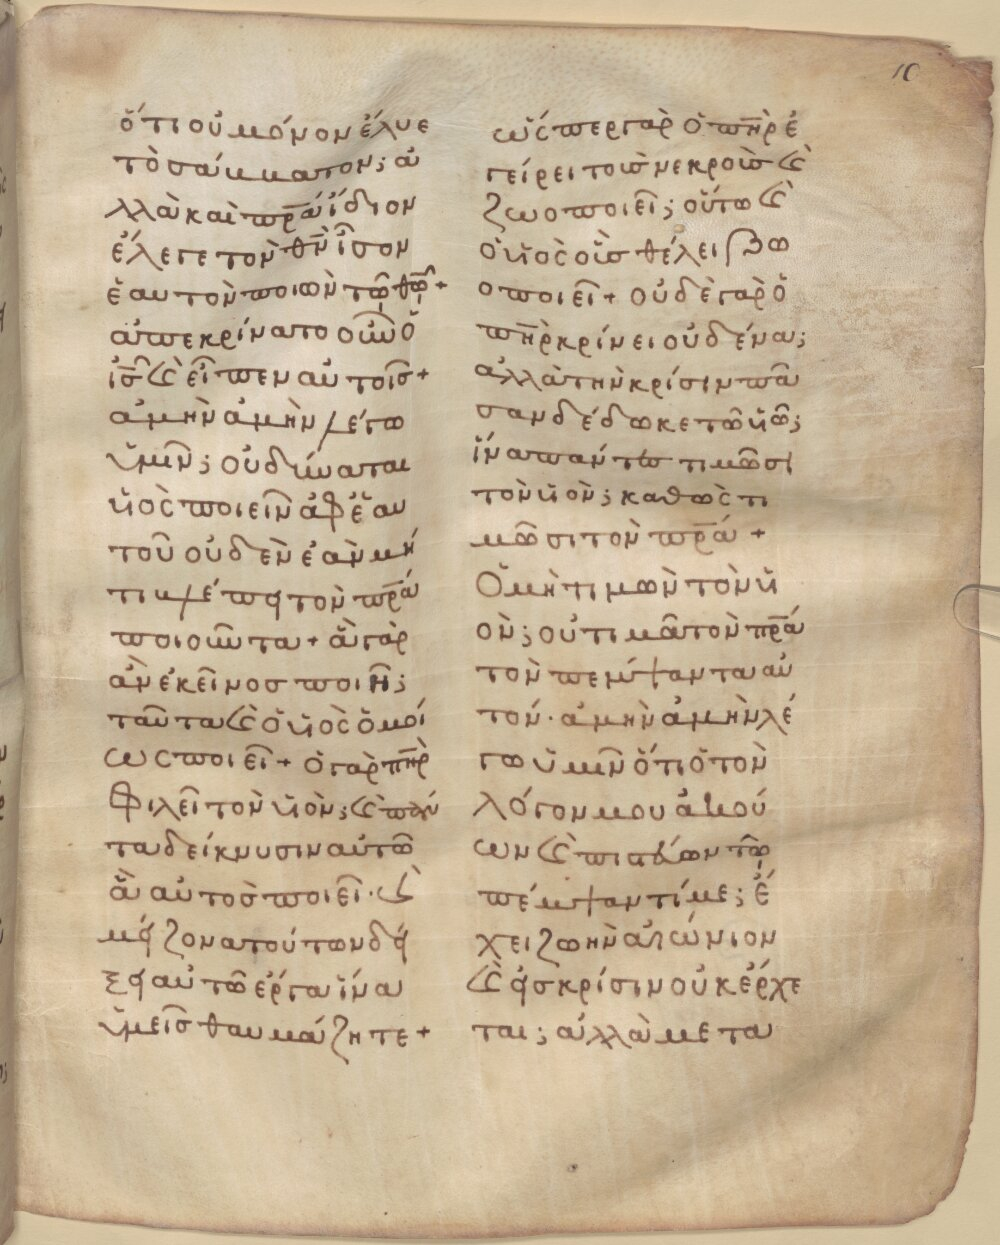 10
ὅτι οὐ μόνον ἔλυε
τὸ σάββατον; ἀ
λλὰ καὶ πρ̅α ἴδιον
ἔλεγε τὸν θ̅ν ἶσον
ἑαυτὸν ποιῶν τῶ θ̅ω +
ἀπεκρίνατο οὖν ὁ
ἰ̅ς καὶ εἶπεν αὐτοῖς +
ἀμὴν ἀμὴν λέγω
ὑμῖν; οὐ δύναται
ὑἱὸς ποιεῖν ἀφ' ἑαυ
τοῦ οὐδὲν ἐὰν μή
τι βλέπει τὸν πρ̅α
ποιοῦντα + ἃ γὰρ
ἂν ἐκεῖνος ποιῆ;
ταῦτα καὶ ὁ ὑἱὸς ὁμοί
ως ποιεῖ + ὁ γὰρ π̅ηρ
φιλεῖ τὸν ὑἱὸν; καὶ πάν
τα δείκνυσιν αὐτῶ
ἃ αὐτὸς ποιεῖ · καὶ
μείζονα τούτων δεί
ξει αὐτῶ ἔργα ἵνα
ὑμεῖς θαυμάζητε +
ὥσπερ γὰρ ὁ π̅ηρ ἐ
γείρει τοὺς νεκροὺς καὶ
ζωοποιεῖ; οὕτω καὶ
ὁ ὑἱὸς οἷς θέλει ζω
οποιεῖ + οὐδὲ γὰρ ὁ
π̅ηρ κρίνει οὐδένα;
ἀλλὰ τὴν κρίσιν πᾶ
σαν δέδωκε τῶ ὑἱῶ;
ἵνα πάντες τιμῶσι
τὸν ὑἱὸν; καθὼς τι
μῶσι τὸν πρ̅α +
Ὁ μὴ τιμῶν τὸν ὑἱ
ὸν; οὐ τιμᾶ τὸν πρ̅α
τὸν πέμψαντα αὐ
τόν · ἀμὴν ἀμὴν λέ
γω ὑμῖν ὅτι ὁ τὸν
λόγον μου ἀκού
ων καὶ πιστεύων τῶ
πέμψαντί με; ἔ
χει ζωὴν αἰώνιον
καὶ εἰς κρίσιν οὐκ ἔρχε
ται; ἀλλὰ μετα